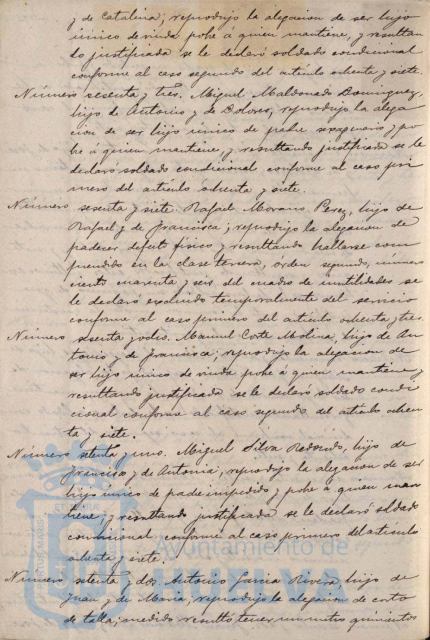 y de Catalina; reprodujo la alegacion de ser hijo
único de viuda pobre á quien mantiene, y resultan
do justificada se le declaró soldado condicional
conforme al caso segundo del artículo ochenta y siete.
Número sesenta y tres. Miguel Maldonado Dominguez,
hijo de Antonio y de Dolores, reprodujo la alega
cion de ser hijo único de padre sexagenario y po
bre á quien mantiene, y resultando justificada se le
declaró soldado condicional conforme al caso pri
mero del artículo ochenta y siete.
Número sesenta y siete. Rafael Morano Perez, hijo de
Rafael y de Francisca; reprodujo la alegacion de
padecer defecto físico y resultando hallarse com
prendido en la clase tercera, órden segundo, número
ciento cuarenta y seis del cuadro de inutilidades se
le declaró excluido temporalmente del servicio
conforme al caso primero del artículo ochenta y tres.
Número sesenta y ocho. Manuel Corte Molina, hijo de An
tonio y de Francisca; reprodujo la alegacion de
ser hijo único de viuda pobre á quien mantiene y
resultando justificada se le declaró soldado condi
cional conforme al caso segundo del artículo ochen
ta y siete.
Número setenta y uno. Miguel Silva Redondo, hijo de
Francisco y de Antonia, reprodujo la alegacion de ser
hijo único de padre impedido y pobre á quien man
tiene, y resultando justificada se le declaró soldado
condicional, conforme al caso primero del artículo
ochenta y siete.
Número setenta y dos. Antonio Garcia Rivera, hijo de
Juan y de Maria, reprodujo la alegacion de corto
de talla; medido resultó tener un metro quinientos
Ayuntamiento de
HUELVA